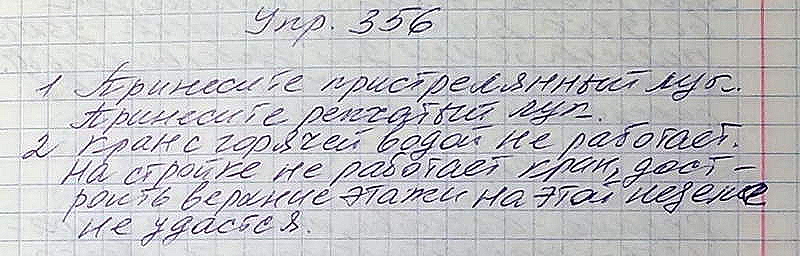 Упр. 356
1 Принесите пристрелянный лук.
Принесите репчатый лук.
2 Кран с горячей водой не работает.
На стройке не работает кран, дост-
роить верхние этажи на этой неделе
не удастся.